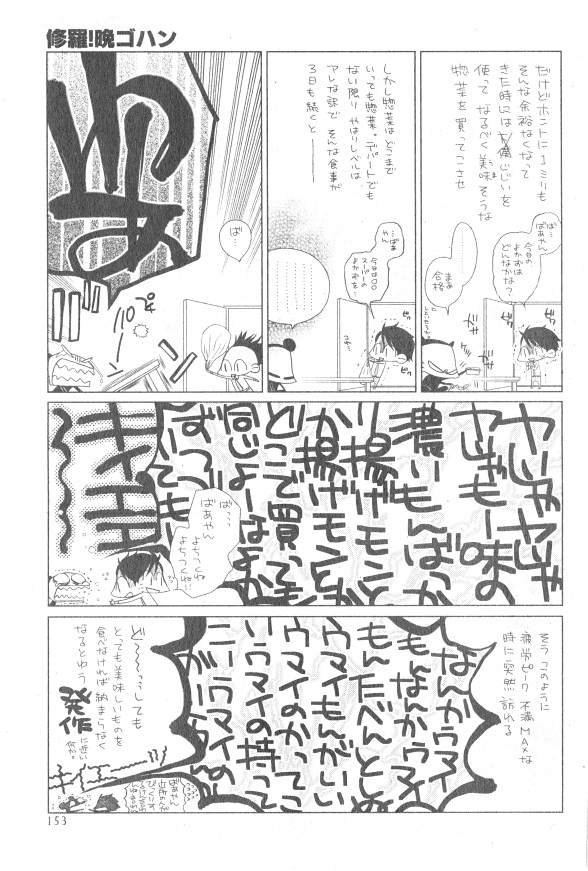 修羅!晩ゴハン
だけどホントに1ミリも
そんな余裕なくなって
きた時には
使って なるべく美味そうな
惣菜を買ってこさせ
ば…
ばあやん
今日の
よかずは
どんなかな?
まあ
合格
しかし惣菜はどこまで
いっても惣菜。デパートでも
ない限り やはりレベルは
アレな訳で そんな食事が
3日も続くと――
…ばあ
やん
今日は○○
スーパーの
よかずを…
ば…
ヤじゃヤじゃ
ヤじゃもー味の
濃いもんばっか
り揚げモンとか
か揚げモンとか
どこで買っても
同じよーなよか
ずばっつでも
キエエ〜〜〜
ば…
ばあやん
よちつくね
よちつくね!!
そう このように
疲労ピーク 不満MAXな
時に突然 訪れる
なんかウマイ
もんなんかウマイ
もんたべんとし
ウマイもんがいい
ウマイのかってこ
いウマイの持って
こーウマイの
がいー
ど〜〜〜しても
とっても美味しいものを
食べなければ納まらなく
なるとゆう
発作
に近い
何か
153